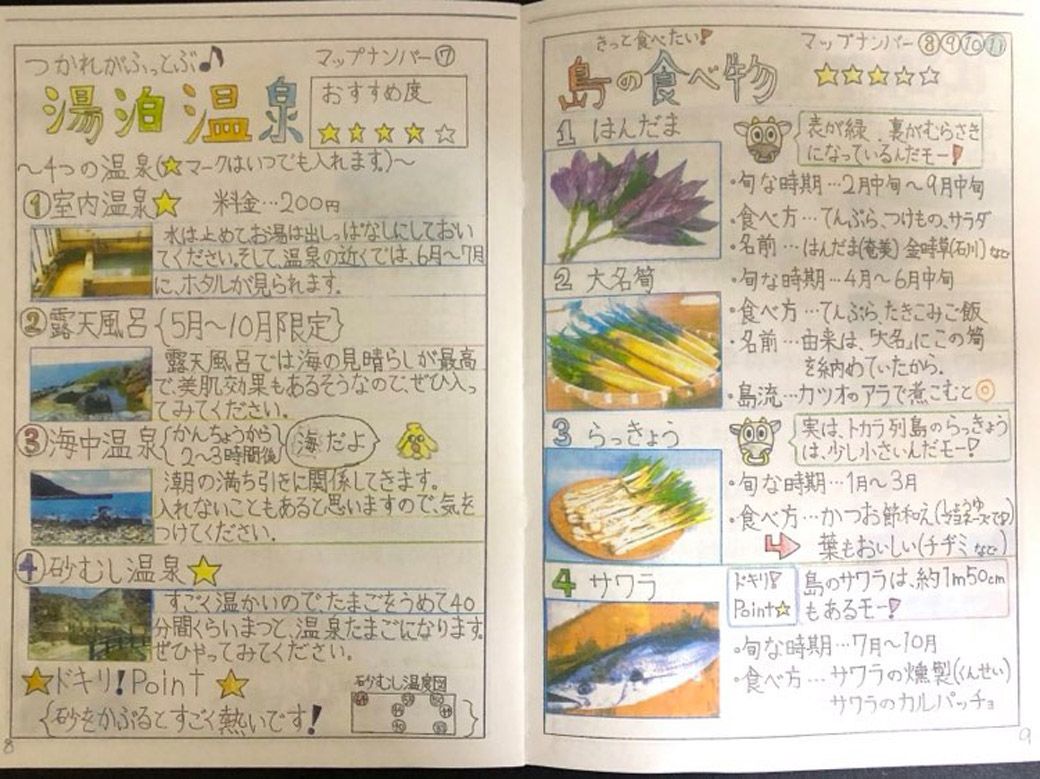 つかれがふっとぶ♪
マップナンバー⑦
湯泊温泉
おすすめ度
★★★★☆
～4つの温泉(★マークはいつでも入れます。)～
①室内温泉★ 料金…200円
水は止めて、お湯は出しっぱなしにしておい
てください。そして、温泉の近くでは、6月～7月
に、ホタルが見られます。
②露天風呂{5月～10月限定}
露天風呂では海の見晴らしが最高
で、美肌効果もあるそうなので、ぜひ入っ
てみてください。
③海中温泉{かんちょうから
2～3時間後}
海だよ
潮の満ち引きに関係してきます。
入れないこともあると思いますので、気を
つけてください。
④砂むし温泉★
すごく温かいので、たまごをうめて40
分間くらいまつと、温泉たまごになります。
ぜひやってみてください。
★ドキリ!Point★
{砂をかぶるとすごく熱いです!
砂むし温度図
}
8
きっと食べたい!
マップナンバー⑧⑨⑩⑪
島の食べ物
★★★☆☆
1 はんだま
表が緑、裏がむらさき
になっているんだモー!
・旬な時期…2月中旬～9月中旬
・食べ方…てんぷら、つけもの、サラダ
・名前…はんだま(奄美)金時草(石川)など
2 大名筍
・旬な時期…4月～6月中旬
・食べ方…てんぷら、たきこみご飯
・名前…由来は、「大名」にこの筍
を納めていたから。
・島流…カツオのアラで煮こむと◎
3 らっきょう
実は、トカラ列島のらっきょう
は、少し小さいんだモー!
・旬な時期…1月～3月
・食べ方…かつお節和え
葉もおいしい(チヂミなど)
4 サワラ
ドキリ!
Point★
島のサワラは、約1m50cm
もあるモー!
・旬な時期…7月～10月
・食べ方…サワラの燻製(くんせい)
サワラのカルパッチョ
9